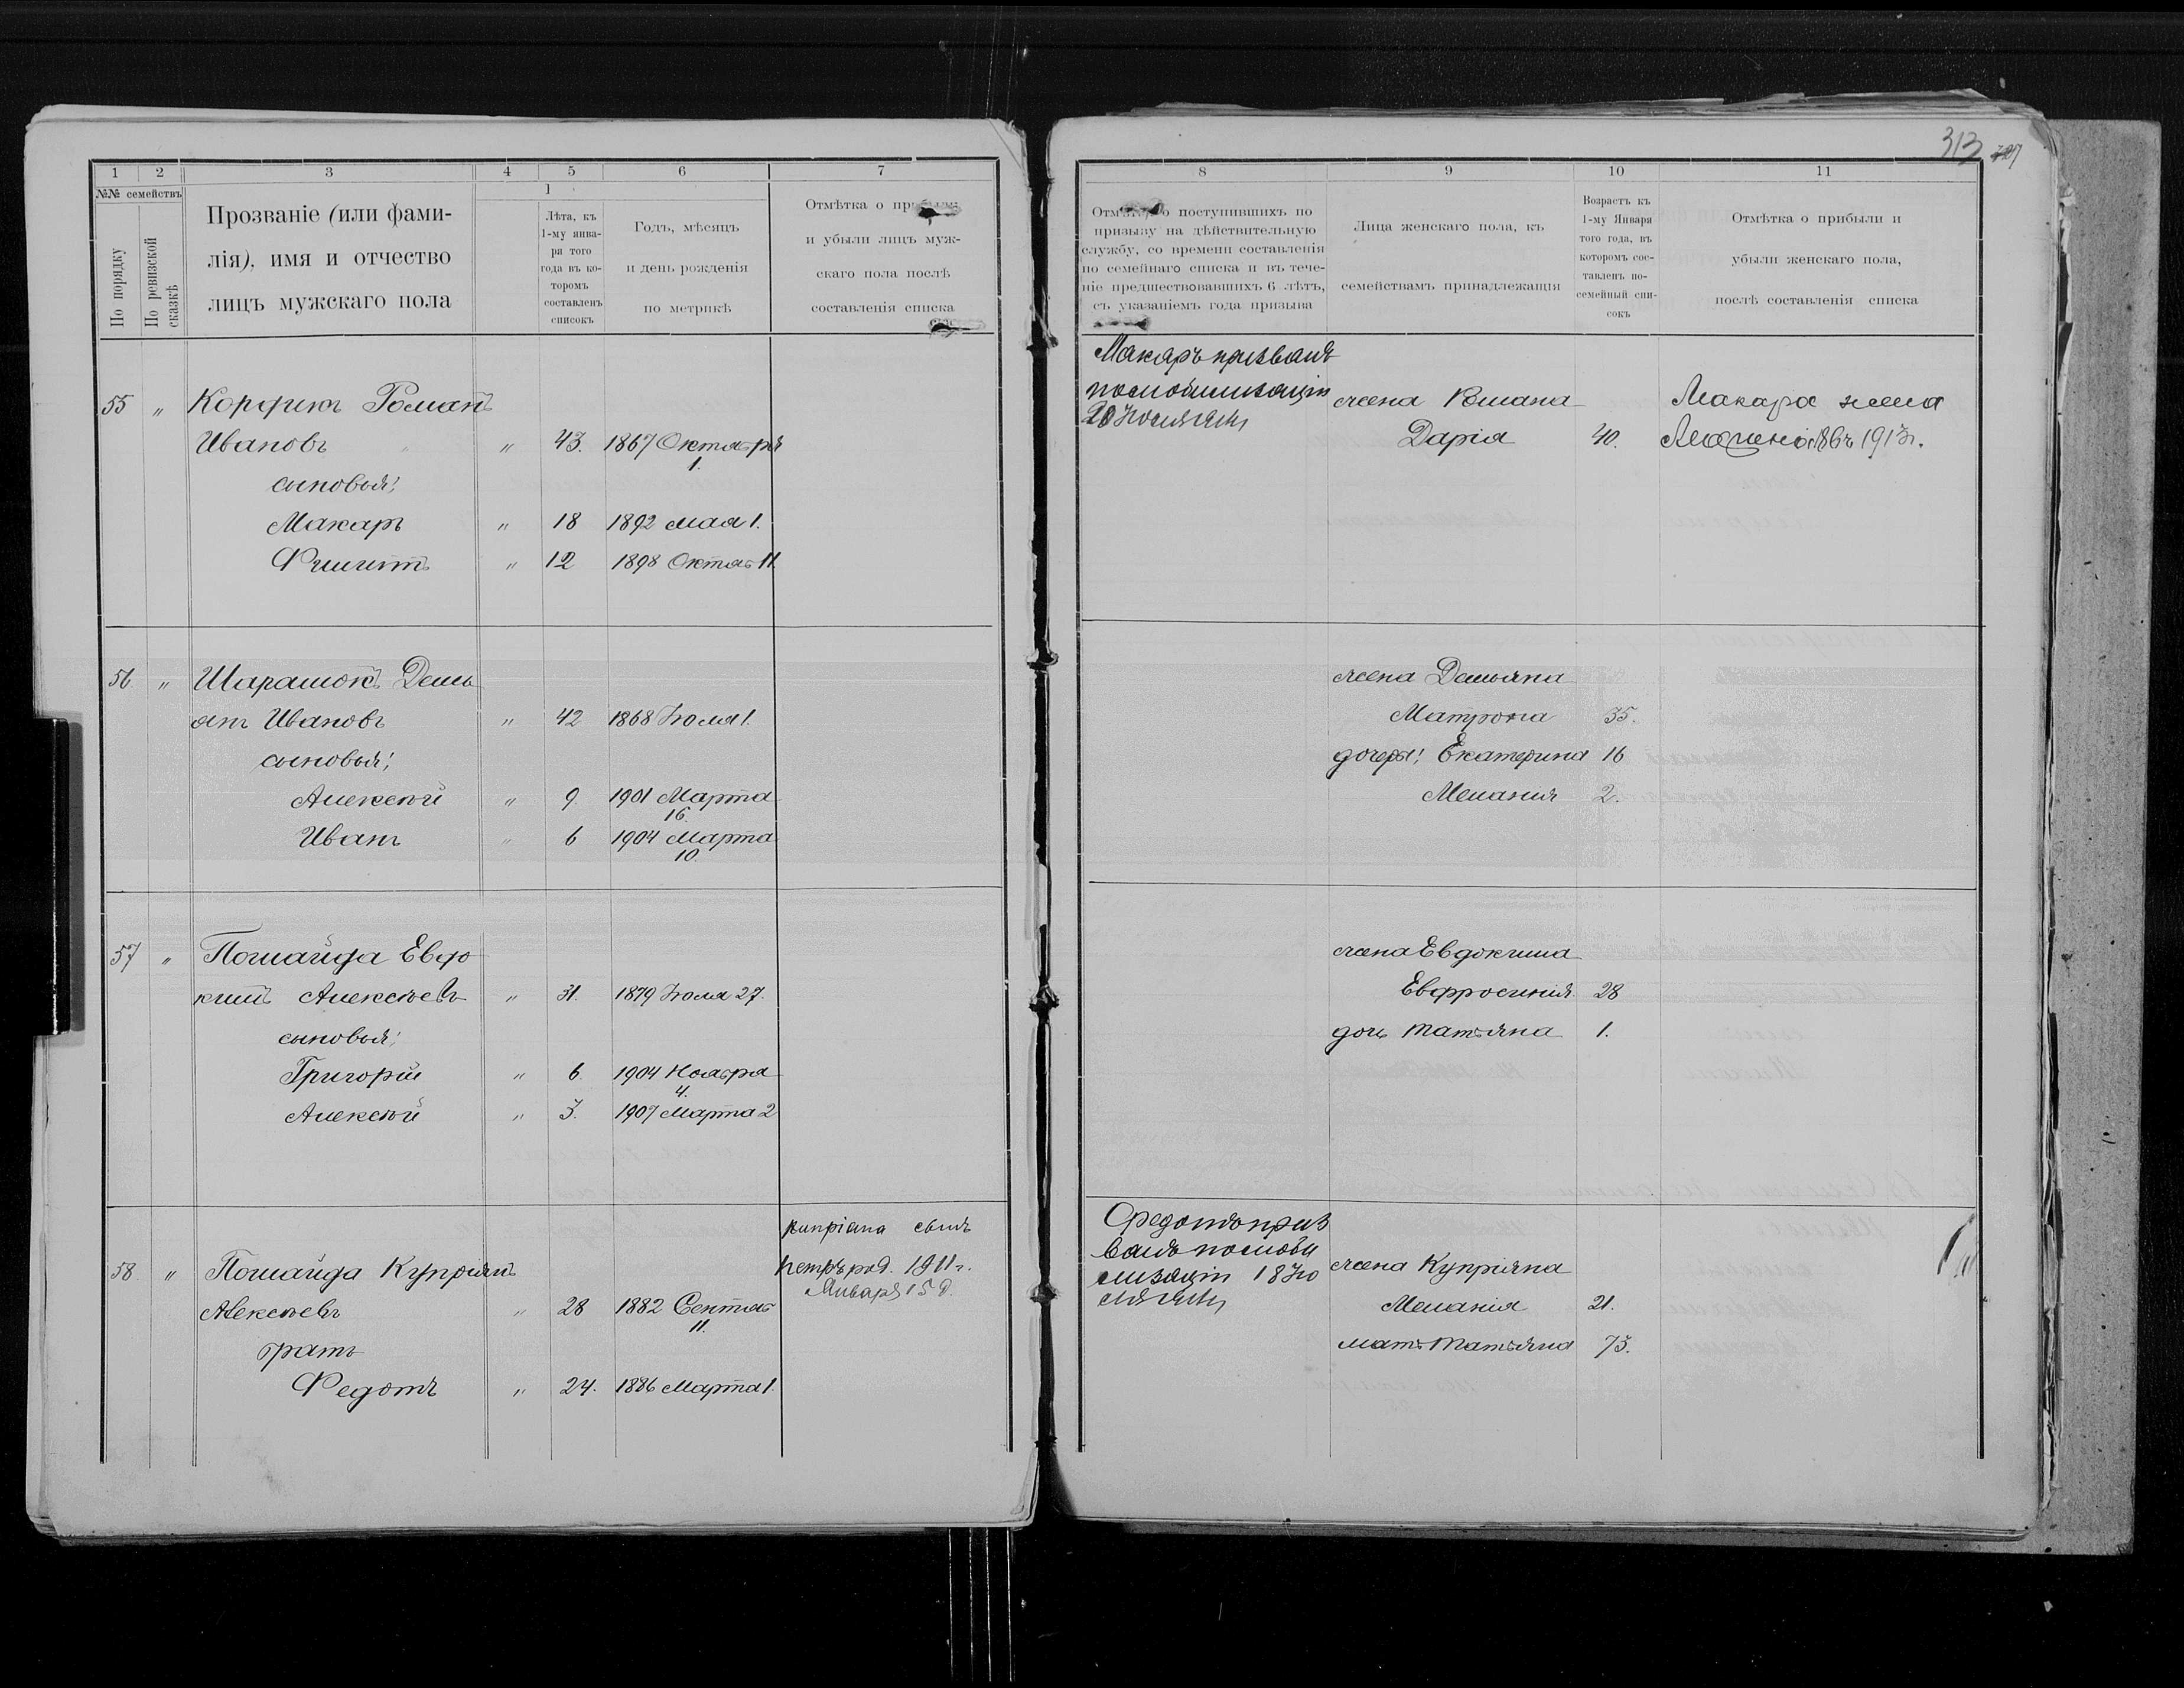 1 2 3 4 5 6 7
№№ семействъ
По порядку
По ревизской сказкѣ
Прозваніе (или фами-
лія), имя и отчество
лицъ мужскаго пола
1
Лѣта, къ
1-му янва-
ря того
года въ ко-
торомъ
составленъ
списокъ
Годъ, мѣсяцъ
и день рожденія
по метрикѣ
Отмѣтка о
и убыли лицъ муж-
скаго пола послѣ
составленія списка
55 " Корфикъ Романъ
Ивановъ " 43. 1867 Октября
1.
сыновья:
Макаръ " 18 1892 мая 1.
Филитъ " 12 1898 Октяб 11
56 " Шарамокъ Демь
янъ Ивановъ " 42 1868 Іюля 1.
сыновья:
Алексѣй " 9. 1901 Марта
16.
Иванъ " 6 1904 Марта
10.
57 " Помайда Евдо
кимъ Алексѣевъ " 31. 1879 Іюля 27.
сыновья:
Григорій " 6. 1904 Ноября
4.
Алексѣй " 3. 1907 Марта 2
58 " Помайда Купріянъ
Алексѣевъ " 28 1882 Сентяб
11.
братъ
Федотъ " 24. 1886 Марта 1.
Купріана сынъ
Петръ род. 1911 г.
Января 15 д.
313
8 9 10 11
о поступившихъ по
призыву на дѣйствительную
службу, со времени составленія
по семейнаго списка и въ тече-
ніе предшествовавшихъ 6 лѣтъ,
съ указаніемъ года призыва
Лица женскаго пола, къ
семействамъ принадлежащія
Возрастъ къ
1-му Января
того года, въ
которомъ сос-
тавленъ по-
семейный спи-
сокъ
Отмѣтка о прибыли и
убыли женскаго пола,
послѣ составленія списка
Макаръ призванъ
по мобилизаціи
Іюля
жена Романа
Дарія 40.
Макара жена
въ 1913 г.
жена Демьяна
Матрона 35.
дочеры: Екатерина 16
Меланія 2.
жена Евдокима
Евфросинія 28
дочь Татьяна 1.
Федотъ приз
ванъ по моби
лизаціи 18 Ію
ля
жена Купріяна
Меланія 21.
мать Татьяна 73.